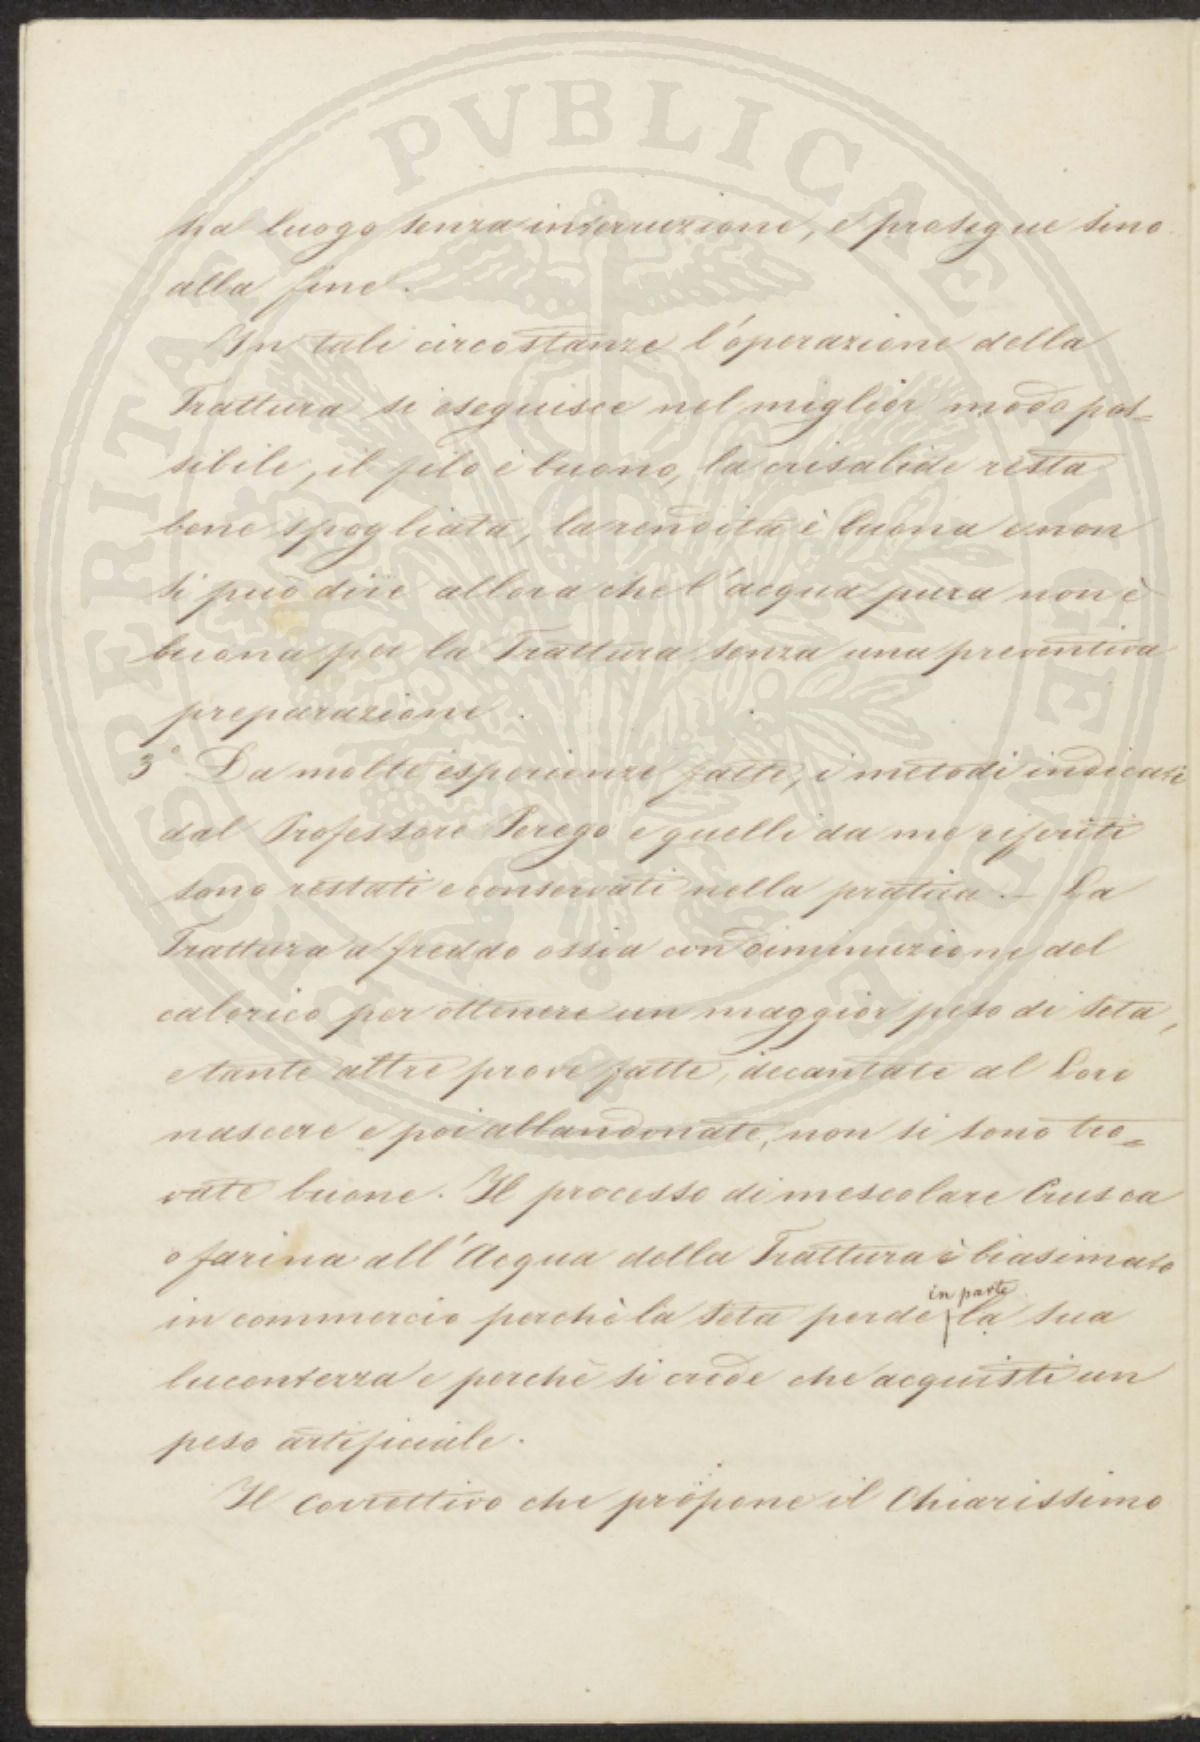 ha luogo senza interruzione, e prosegue sino
alla fine.
In tali circostanze l'operazione della
Trattura si eseguisce nel miglior modo pos=
sibile, il filo è buono, la crisalide resta
bene spogliata, la rendita è buona e non
si può dire allora che l'acqua pura non è
buona per la Trattura senza una preventiva
preparazione.
3° Da molte esperienze fatte, i metodi indicati
dal Professore Perego e quelli da me riferiti
sono restati e conservati nella pratica. — La
Trattura a freddo ossia con diminuzione del
calorico per ottenere un maggior peso di seta,
e tante altre prove fatte, decantate al Loro
nascere e poi abbandonate, non si sono tro=
vate buone. Il processo di mescolare Crusca
o farina all'Acqua della Trattura è biasimato
in commercio perchè la seta perde in parte la sua
lucentezza e perchè si crede che acquisti un
peso artificiale.
Il Correttivo che propone il Chiarissimo
PROSPERITATI PVBLICAE AVGENDAE